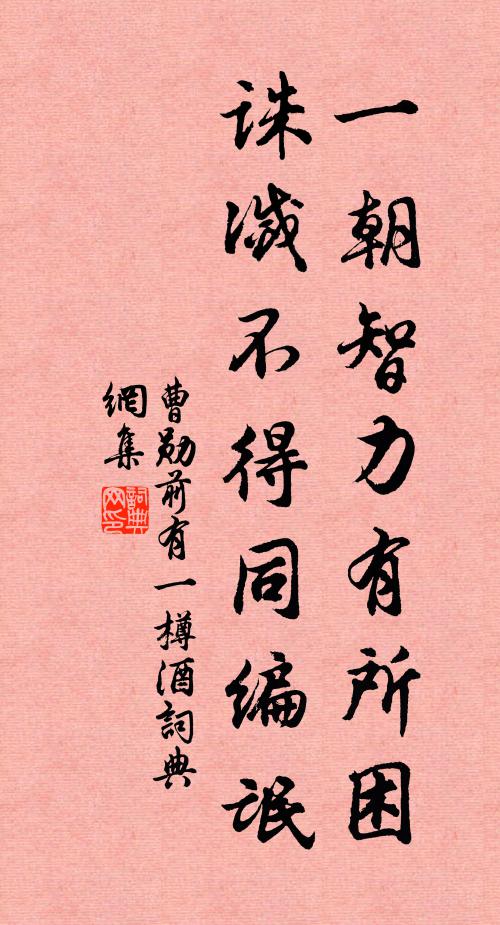 一朝智力有所困
誅滅不得同編氓
曹勛前有一樽酒詞典
網集
詞典
网印